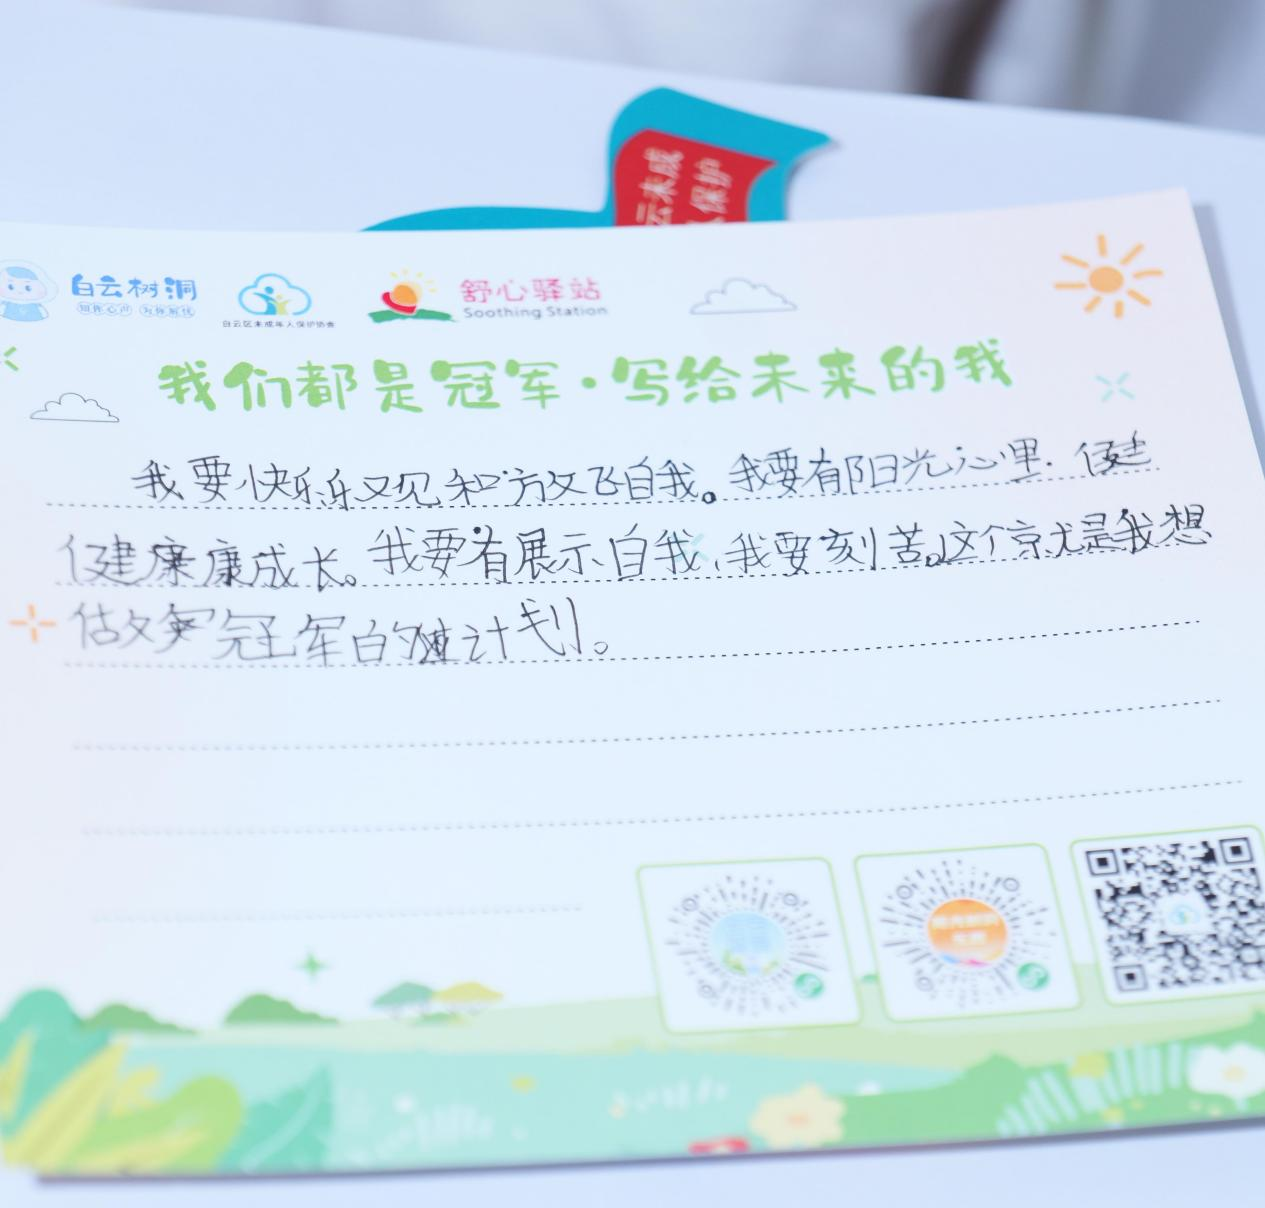 云未成
保护
白云树洞
知你心声 为你解忧
白云区未成年人保护协会
舒心驿站
Soothing Station
我们都是冠军·写给未来的我
我要快乐乐观和放飞自我。我要有阳光心里.
健康成长。我要有展示自我,我要刻苦。这个京尤是我想
做冠军的计划。